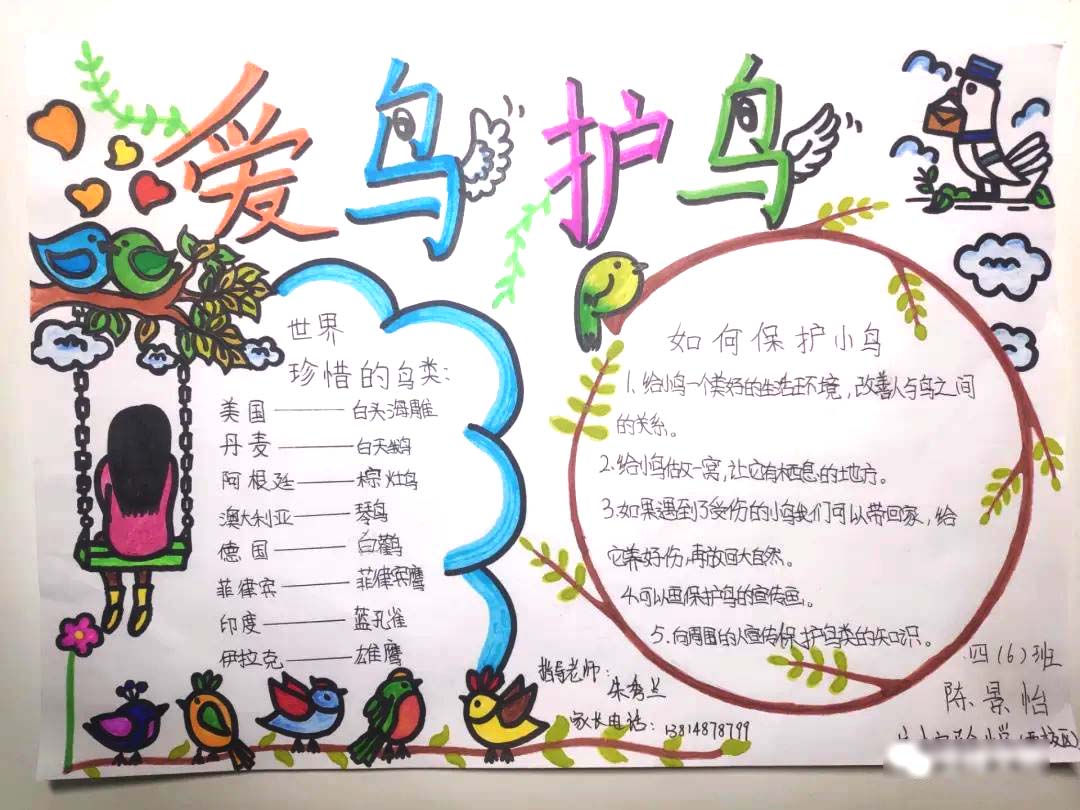 爱鸟护鸟
世界
珍惜的鸟类:
美国——白头海雕
丹麦——白天鹅
阿根廷——棕灶鸟
澳大利亚——琴鸟
德国——白鹳
菲律宾——菲律宾鹰
印度——蓝孔雀
伊拉克——雄鹰
如何保护小鸟
1.给小鸟一个美好的生活环境,改善人与鸟之间
的关系。
2.给小鸟做一窝,让它有栖息的地方。
3.如果遇到了受伤的小鸟我们可以带回家,给
它养好伤,再放回大自然。
4.可以画保护鸟的宣传画。
5.向周围的人宣传保护鸟类的知识。
指导老师:朱秀兰
家长电话:13814878799
四(6)班
陈景怡